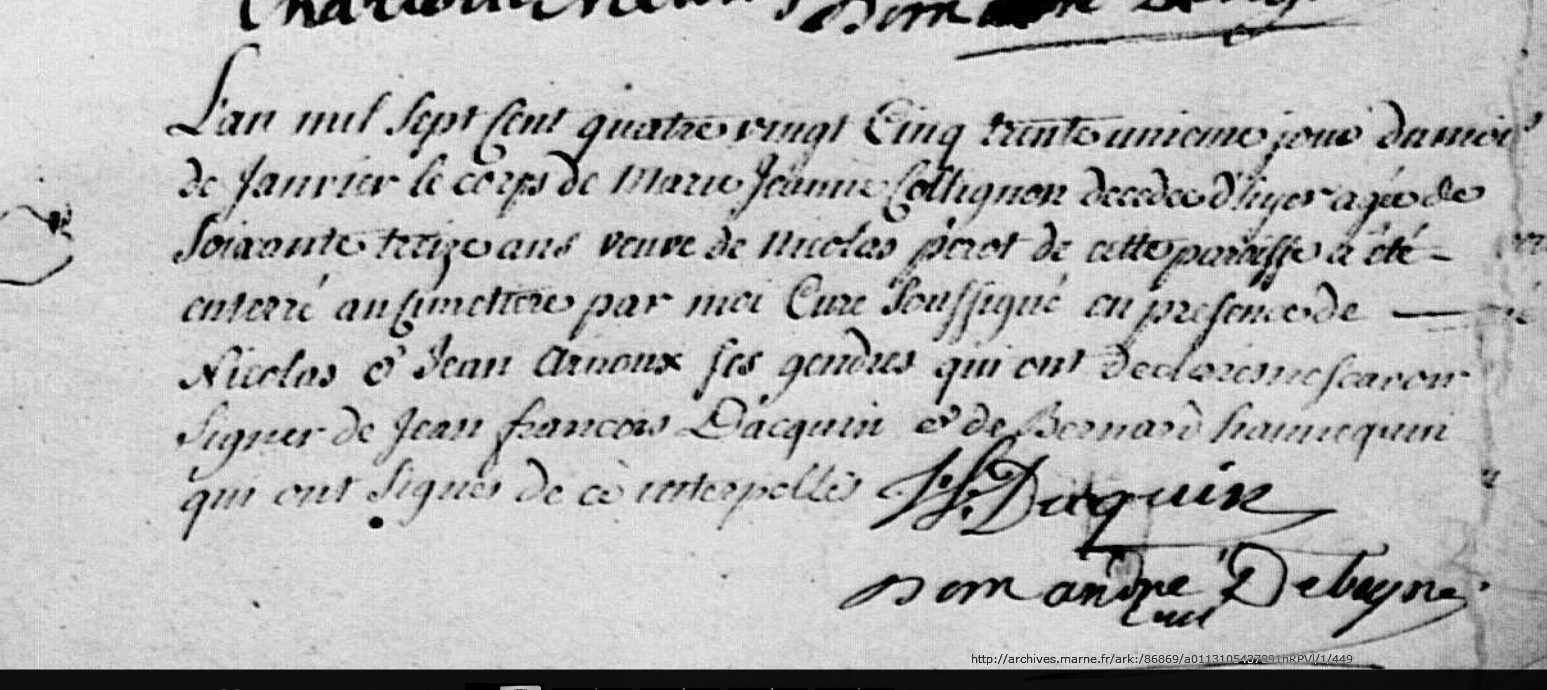 Dom andre De
L'an mil sept Cent quatre vingt Cinq trente unieme jour du mois
de Janvier le corps de Marie Jeanne Collignon decedee d'hyer agée de
Soixante treize ans veuve de Nicolas perot de cette paroisse a été
enterré au Cimetiere par moi Curé Soussigné en presence de
Nicolas & Jean Arnoux ses gendres qui ont declares ne scavoir
signer de Jean francois Dacquin & de Bernard hannequin
qui ont signés de ce interpellés J. f. Daquin
Dom andre Debeyne
Curé
http://archives.marne.fr/ark:/86869/
/1/449